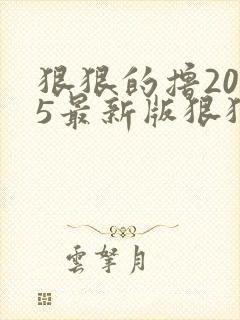 狠狠的撸20
5最新版狠狠
雲拏月